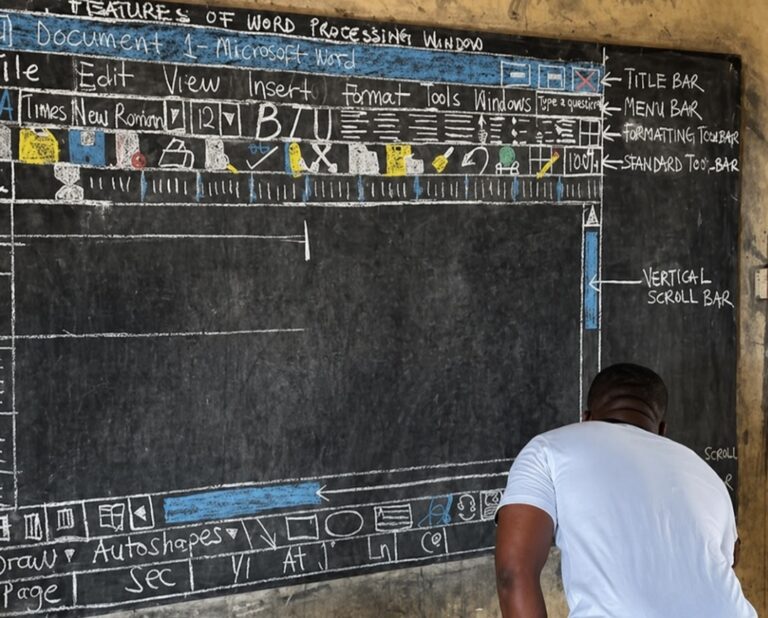 FEATURES OF WORD PROCESSING WINDOW
Document 1- Microsoft Word
TITLE BAR
Edit View Insert Format Tools Windows Type a question
MENU BAR
A Times New Roman 12 B I U
FORMATTING TOOLBAR
100%
STANDARD TOOL-BAR
VERTICAL
SCROLL BAR
SCROLL
Draw Autoshapes
Page Sec Y1 At Ln Co